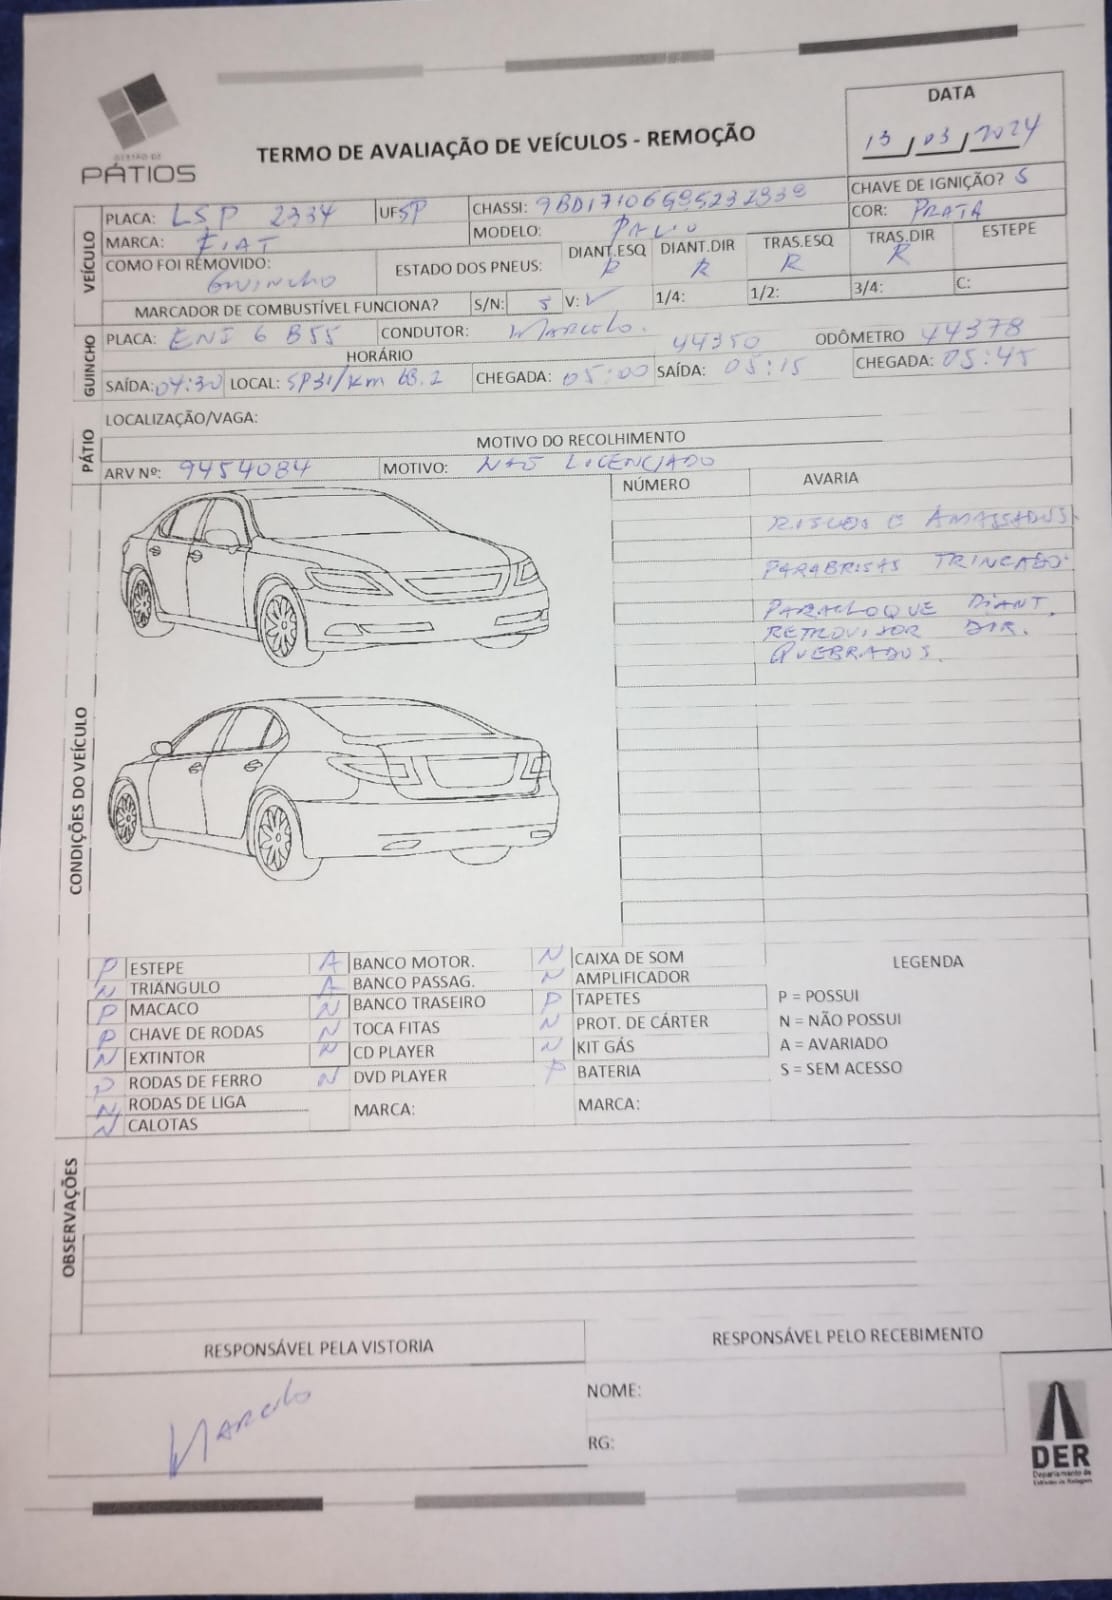 GESTÃO DE
PÁTIOS
TERMO DE AVALIAÇÃO DE VEÍCULOS - REMOÇÃO
DATA
13/03/2024
CHAVE DE IGNIÇÃO? S
VEÍCULO
PLACA: LSP 2334 UF SP CHASSI: 9BD17106G85232939 COR: PRATA
MARCA: FIAT MODELO: PALIO
COMO FOI REMOVIDO: GUINCHO ESTADO DOS PNEUS: DIANT.ESQ R DIANT.DIR R TRAS.ESQ R TRAS.DIR R ESTEPE
MARCADOR DE COMBUSTÍVEL FUNCIONA? S/N: S V: ✓ 1/4: 1/2: 3/4: C:
GUINCHO
PLACA: ENI 6 B55 CONDUTOR: MARCELO. 44350 ODÔMETRO 44378
HORÁRIO
SAÍDA: 04:30 LOCAL: SP31/KM 68.2 CHEGADA: 05:00 SAÍDA: 05:15 CHEGADA: 05:45
PÁTIO
LOCALIZAÇÃO/VAGA:
MOTIVO DO RECOLHIMENTO
ARV Nº: 9454084 MOTIVO: NÃO LICENCIADO
CONDIÇÕES DO VEÍCULO
NÚMERO AVARIA
RISCOS E AMASSADOS.
PARABRISAS TRINCADO.
PARACLOQUE DIANT.
RETROVISOR DIR.
QUEBRADOS.
P ESTEPE A BANCO MOTOR. N CAIXA DE SOM LEGENDA
N TRIÂNGULO A BANCO PASSAG. N AMPLIFICADOR
P MACACO N BANCO TRASEIRO P TAPETES P = POSSUI
P CHAVE DE RODAS N TOCA FITAS N PROT. DE CÁRTER N = NÃO POSSUI
N EXTINTOR N CD PLAYER N KIT GÁS A = AVARIADO
P RODAS DE FERRO N DVD PLAYER P BATERIA S = SEM ACESSO
N RODAS DE LIGA MARCA: MARCA:
N CALOTAS
OBSERVAÇÕES
RESPONSÁVEL PELA VISTORIA RESPONSÁVEL PELO RECEBIMENTO
Marcelo
NOME:
RG:
DER
Departamento de
Estradas de Rodagem